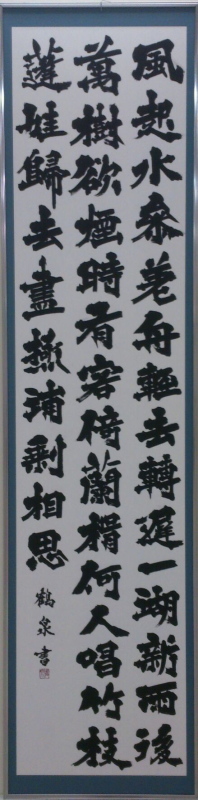 風起水參差舟輕去轉遲一湖新雨後
萬樹欲煙時有客倚蘭楫何人唱竹枝
蓮娃歸去盡極浦剩相思
鶴泉書